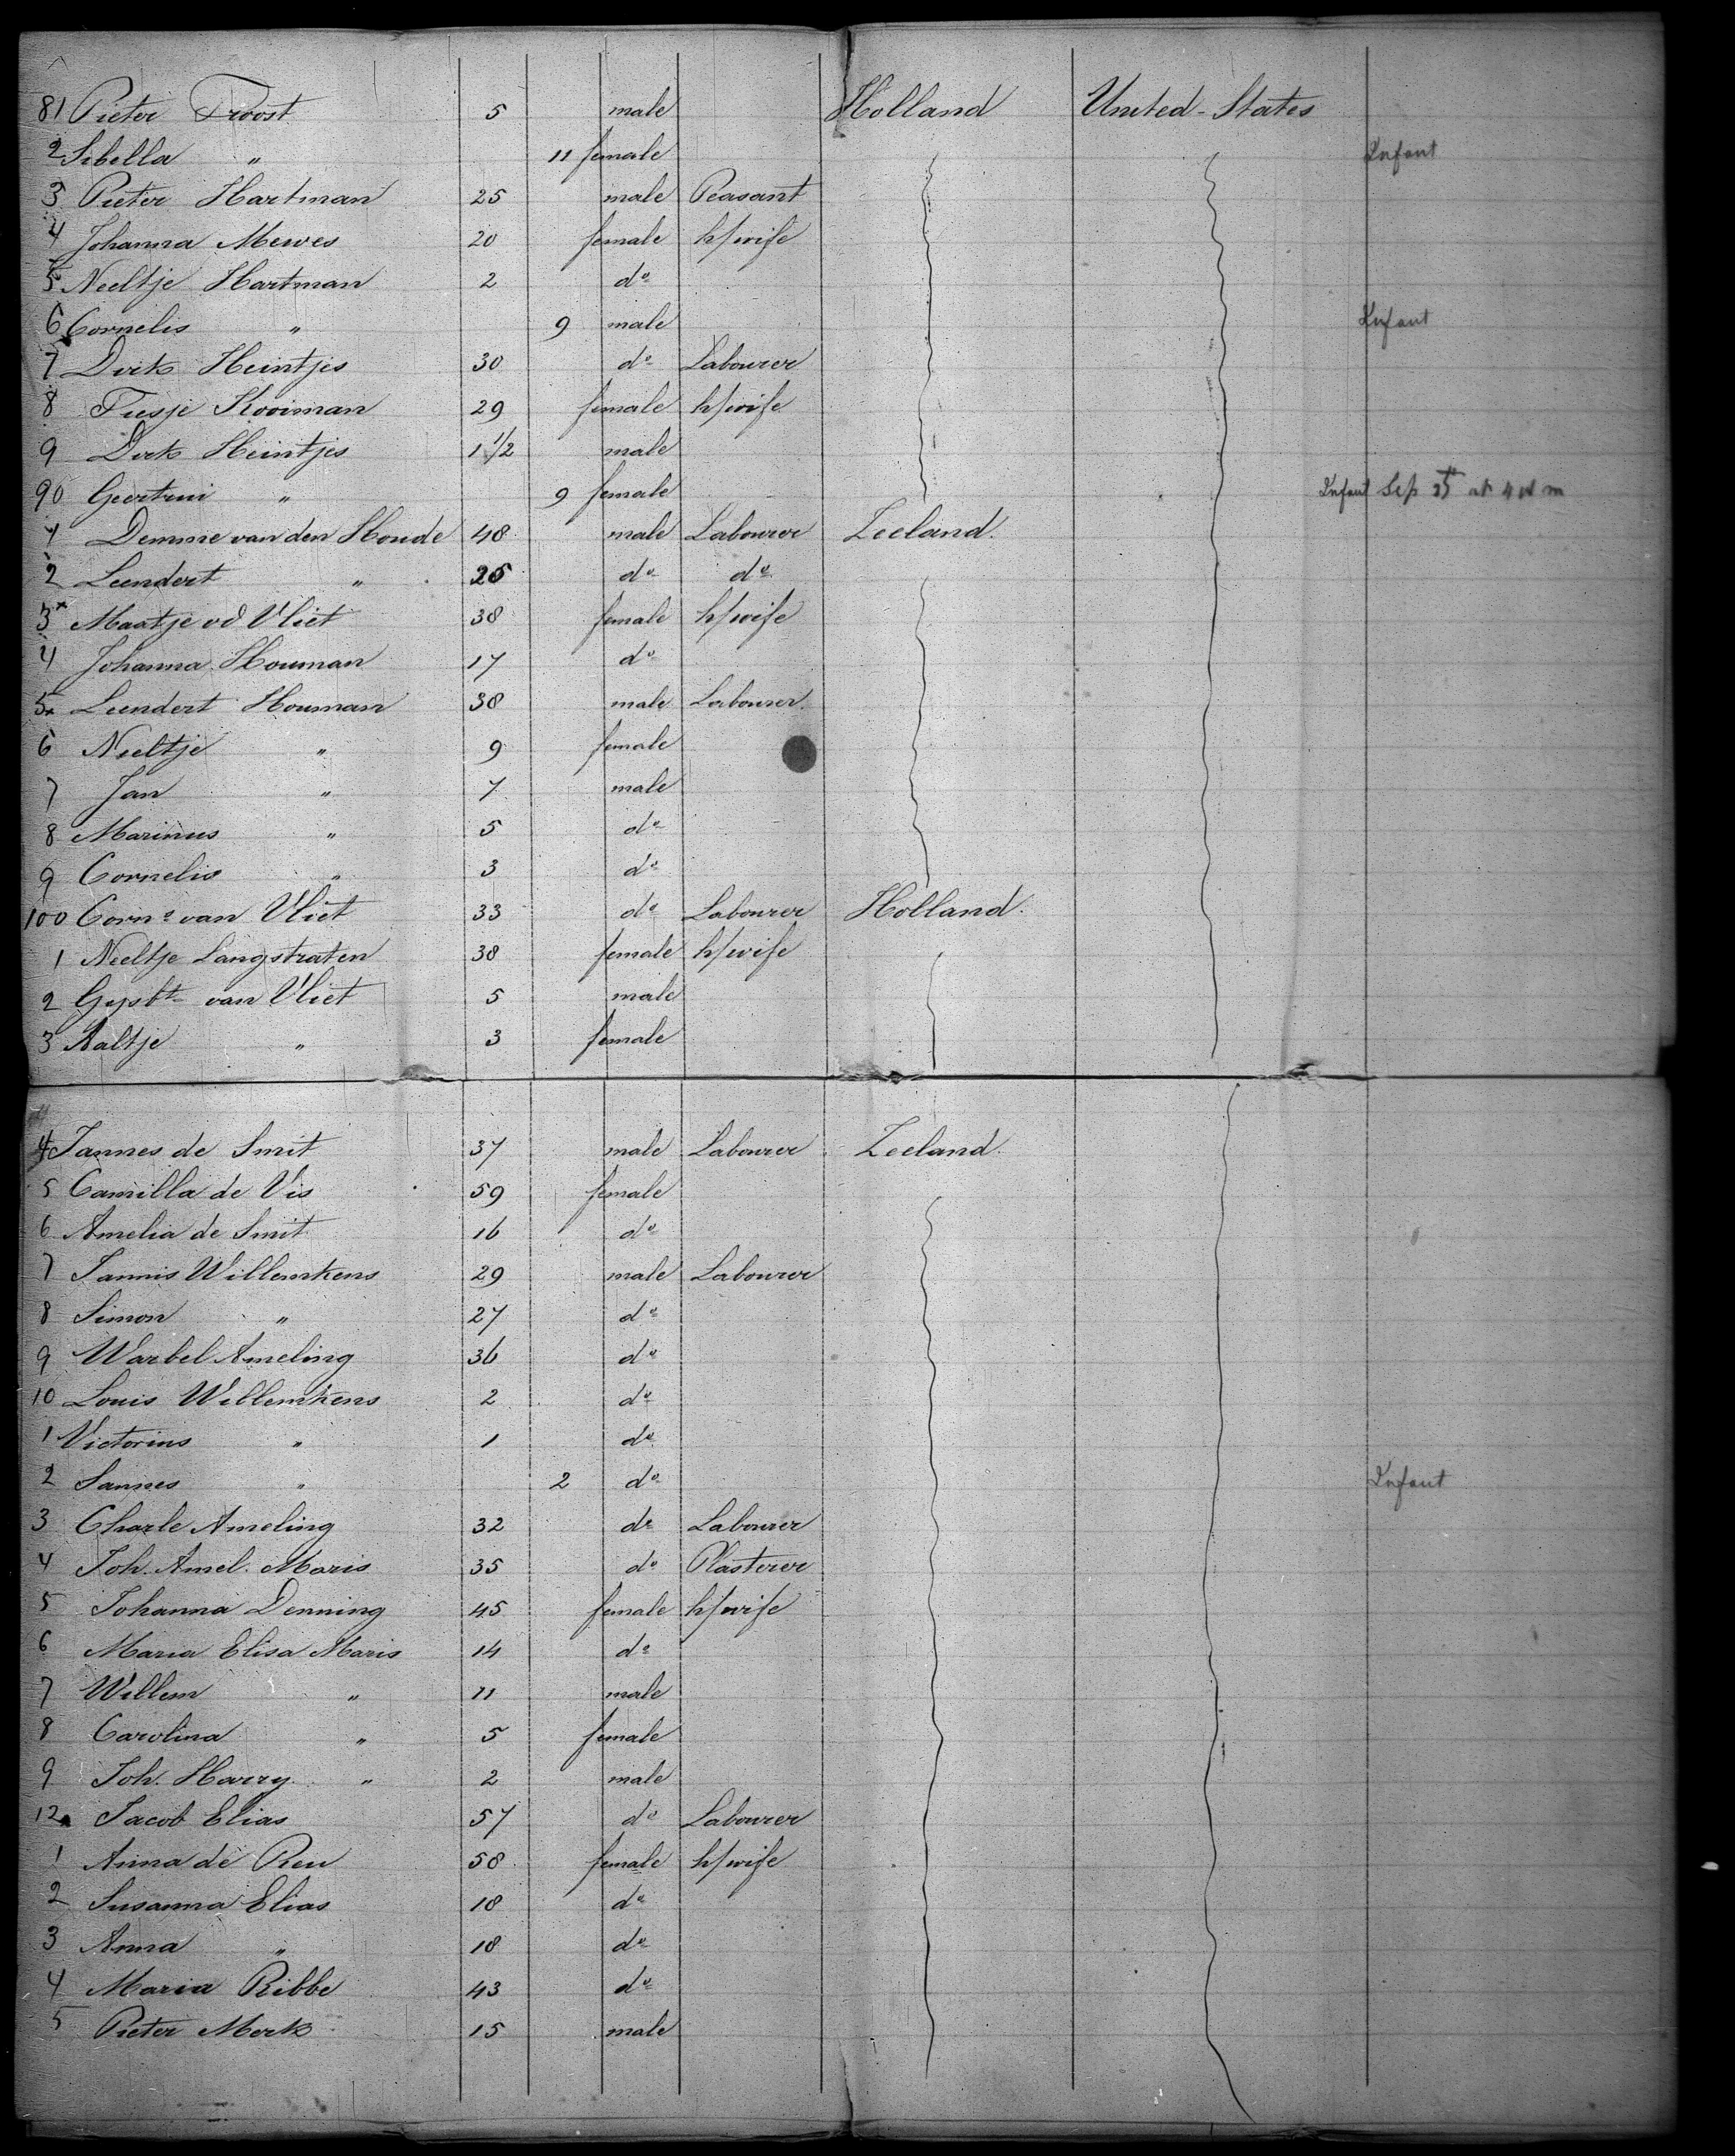 81 Pieter Troost 5 male Holland United-States
2 Sibella " 11 female Infant
3 Pieter Hartman 25 male Peasant
4 Johanna Mewes 20 female h/wife
5 Neeltje Hartman 2 do
6 Cornelis " 9 male Infant
7 Dirk Heintjes 30 do Labourer
8 Tiesje Kooiman 29 female h/wife
9 Dirk Heintjes 1 1/2 male
90 Geertrui " 9 female Infant Sep 25 at 4 m
1 Demme van den Houde 48 male Labourer Zeeland.
2 Leendert " 25 do do
3 Maatje vd Vliet 38 female h/wife
4 Johanna Houman 17 do
5 Leendert Houman 38 male Labourer.
6 Neeltje " 9 female
7 Jan " 7 male
8 Marinus " 5 do
9 Cornelis " 3 do
100 Corns van Vliet 33 do Labourer Holland.
1 Neeltje Langstraten 38 female h/wife
2 Gysbt van Vliet 5 male
3 Aaltje " 3 female
4 Jannes de Smit 37 male Labourer Zeeland.
5 Camilla de Vis 59 female
6 Amelia de Smit 16 do
7 Jannis Willemkens 29 male Labourer
8 Simon " 27 do
9 Warbel Ameling 36 do
10 Louis Willemkens 2 do
1 Victorins " 1 do
2 Jannes " 2 do Infant
3 Charle Ameling 32 do Labourer
4 Joh. Amel. Maris 35 do Plasterer
5 Johanna Denning 45 female h/wife
6 Maria Elisa Maris 14 do
7 Willem " 11 male
8 Carolina " 5 female
9 Joh. Harry " 2 male
12 Jacob Elias 57 do Labourer
1 Anna de Reu 58 female h/wife
2 Susanna Elias 18 do
3 Anna " 18 do
4 Maria Ribbe 43 do
5 Pieter Merk 15 male